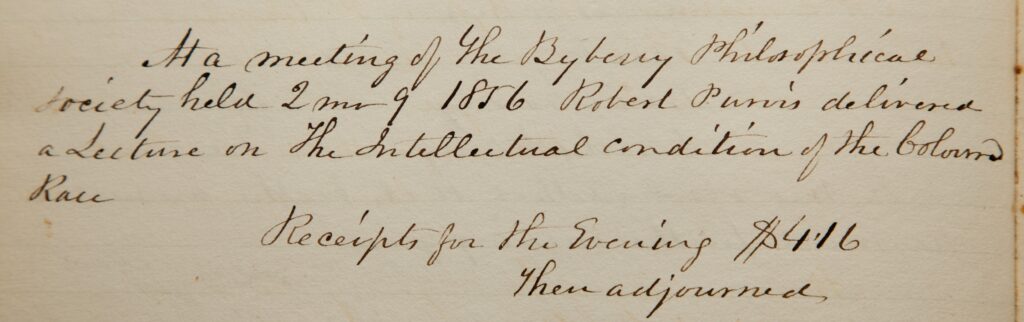 At a meeting of The Byberry Philosophical
Society held 2 mo 9 1856 Robert Purvis delivered
a Lecture on The Intellectual condition of the Coloured
Race
Receipts for the Evening $4.16
Then adjourned